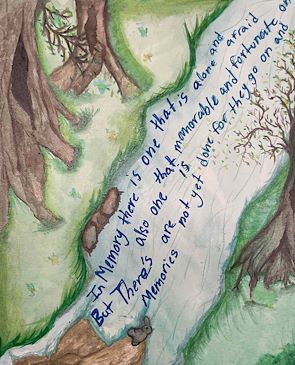 In Memory there is one that is alone and afraid
But There's also one that is memorable and fortunate on
Memories are not yet done for they go on and